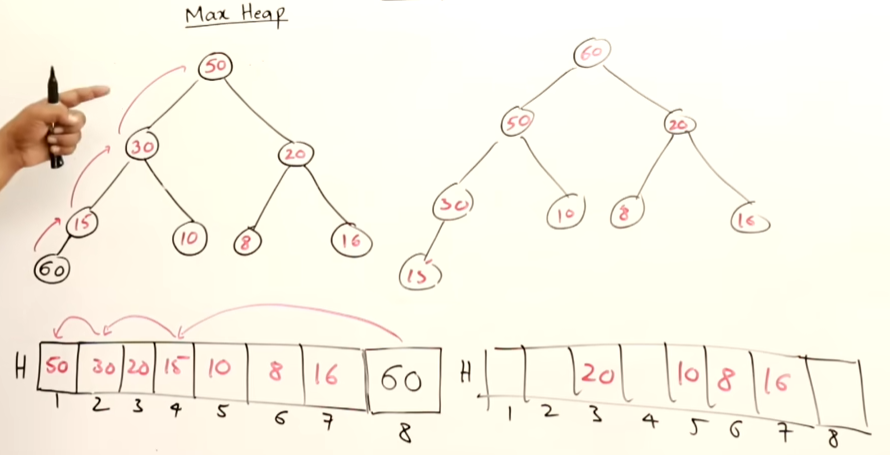 Max Heap
50
30 20
15 10 8 16
60
60
50 20
30 10 8 16
15
H 50 30 20 15 10 8 16 60
1 2 3 4 5 6 7 8
H 20 10 8 16
1 2 3 4 5 6 7 8